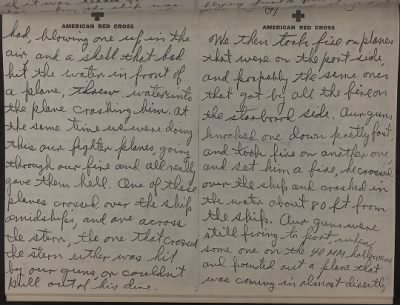 AMERICAN RED CROSS
had, blowing one up in the
air, and a shell that had
hit the water in front of
a plane, threw water into
the plane crashing him. At
the same time we were doing
this our fighter planes, going
through our fire and all really
gave them hell. One of these
planes crossed over the ship
amidships, and one across
the stern, the one that crossed
the stern either was hit
by our guns, or couldn't
pull out of his dive.
(4)
AMERICAN RED CROSS
We then took fire on planes
that were on the port side,
and probably the same ones
that got by all the fire on
the starboard side. Our guns
knocked one down pretty fast
and took fire on another one
and set him a fire, he crossed
over the ship and crashed in
the water about 80 ft from
the ship. Our guns were
still firing to port when
some one on the 40 MM hollered
and pointed out a plane that
was coming in almost directly